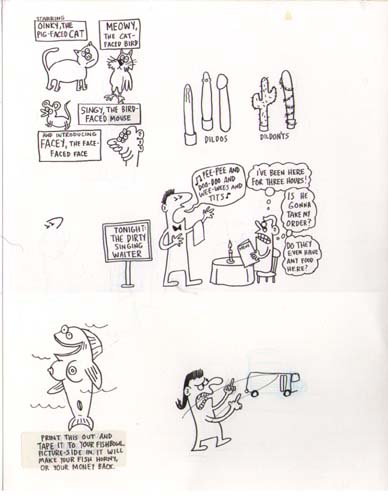 STARRING
OINKY, THE
PIG-FACED CAT
MEOWY,
THE CAT-
FACED BIRD
SINGY, THE BIRD-
FACED MOUSE
AND INTRODUCING
FACEY, THE FACE-
FACED FACE
DILDOS
DILDON'TS
PEE-PEE AND
DOO-DOO AND
WEE-WEES AND
TITS
I'VE BEEN HERE
FOR THREE HOURS!
IS HE
GONNA
TAKE MY
ORDER?
DO THEY
EVEN HAVE
ANY FOOD
HERE?
MENU
TONIGHT:
THE DIRTY
SINGING
WAITER
PRINT THIS OUT AND
TAPE IT TO YOUR FISHBOWL
PICTURE-SIDE IN. IT WILL
MAKE YOUR FISH HORNY,
OR YOUR MONEY BACK.